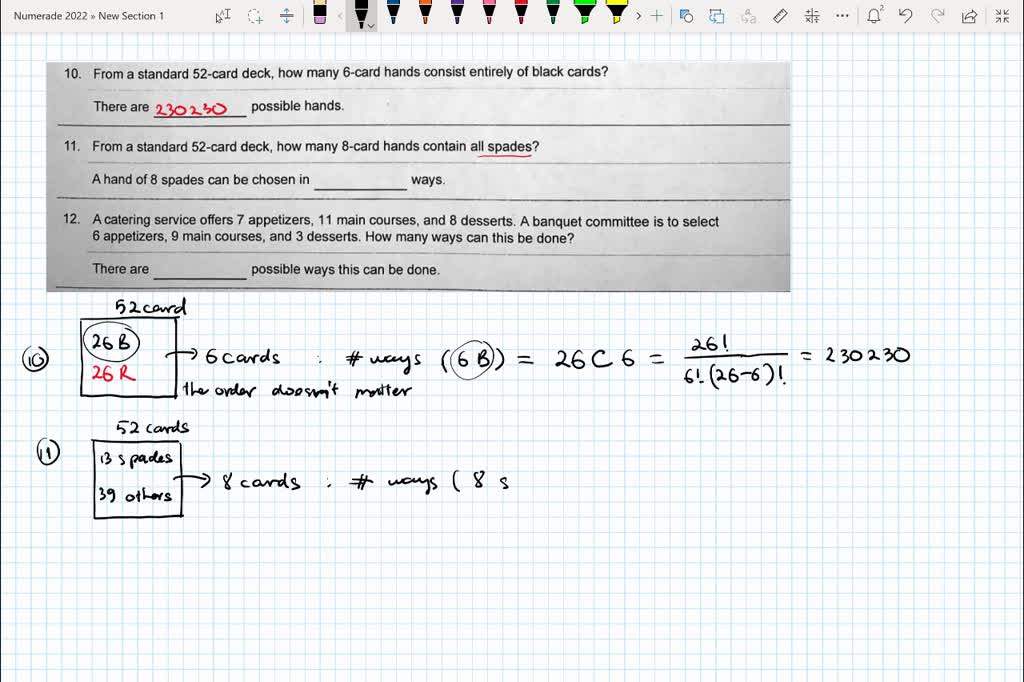 Numerade 2022 » New Section 1
2
10. From a standard 52-card deck, how many 6-card hands consist entirely of black cards?
There are 230230 possible hands.
11. From a standard 52-card deck, how many 8-card hands contain all spades?
A hand of 8 spades can be chosen in ________ ways.
12. A catering service offers 7 appetizers, 11 main courses, and 8 desserts. A banquet committee is to select
6 appetizers, 9 main courses, and 3 desserts. How many ways can this be done?
There are ________ possible ways this can be done.
52 card
10 26B 26R → 6 cards : # ways (6B) = 26C6 = 26! / 6!(26-6)! = 230230
the order doesn't matter
52 cards
11 13 spades
39 others → 8 cards : # ways ( 8 s